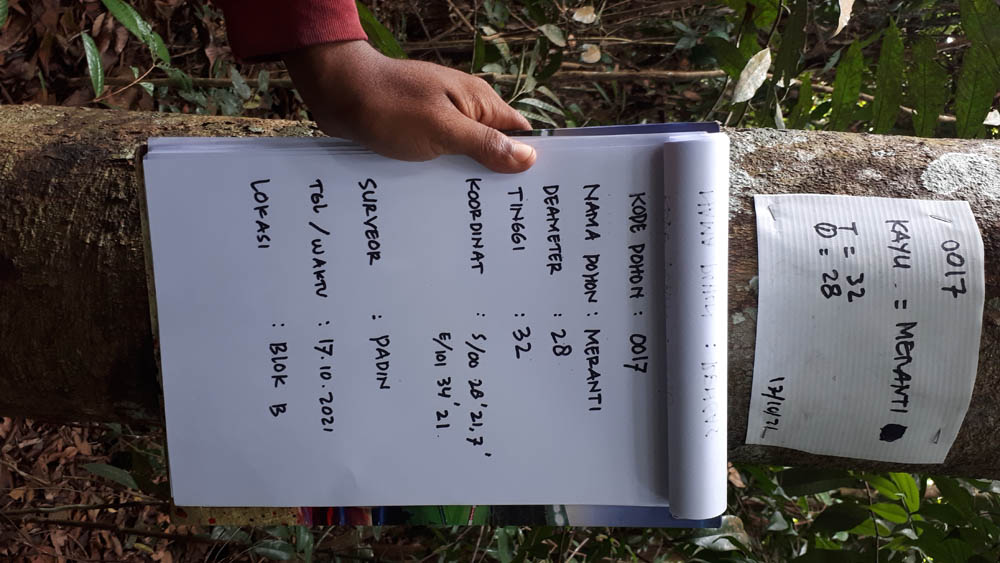 0017
KAYU = MERANTI
T = 32
Ø = 28
17/10/21
KODE POHON : 0017
NAMA POHON : MERANTI
DEAMETER : 28
TINGGI : 32
KOORDINAT : S/00 28' 21,7'
E/101 34' 21.
SURVEOR : PADIN
TGL / WAKTU : 17.10.2021
LOKASI : BLOK B